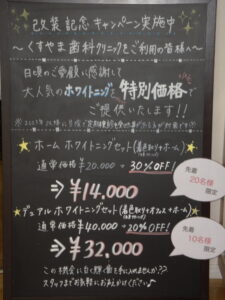 改装記念キャンペーン実施中
～くすやま歯科クリニックをご利用の皆様へ～
日頃のご愛顧に感謝して
大人気のホワイトニングを特別価格で
ご提供いたします!!
ホームホワイトニングセット
通常価格¥20,000 → 30%OFF!
⇒ ¥14,000
先着
20名様
限定
デュアルホワイトニングセット(オフィス+ホーム)
通常価格¥40,000 → 20%OFF!
⇒ ¥32,000
先着
10名様
限定
この機会に白く輝く歯を手に入れませんか??
スタッフまでお気軽にお声がけください